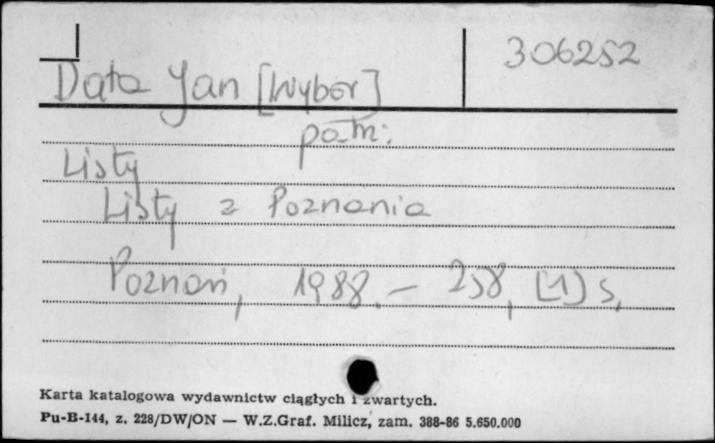 306252
Data Jan [Wybór]
patrz:
Listy
Listy z Poznania
Poznań, 1988. – 258, [1] s.
Karta katalogowa wydawnictw ciągłych i zwartych.
Pu-B-144, z. 228/DW/ON — W.Z.Graf. Milicz, zam. 388-86 5.650.000